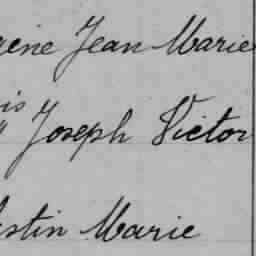 gène Jean Marie
is
" Joseph Victor
stin Marie